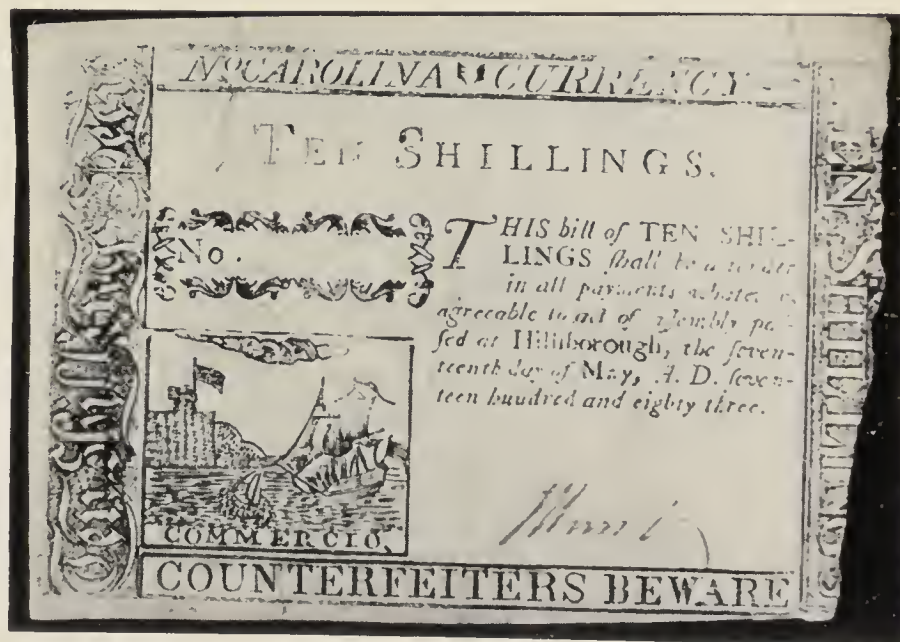 No CAROLINA CURRENCY
TEN SHILLINGS.
No.
THIS bill of TEN SHIL-
LINGS ſhall be a tender
in all payments
agreeable to act of aſſembly paſ-
ſed at Hillſborough, the ſeven-
teenth day of May, A. D. ſeven-
teen hundred and eighty three.
COMMERCIO.
COUNTERFEITERS BEWARE
Ten ſhillings
TEN SHILLINGS